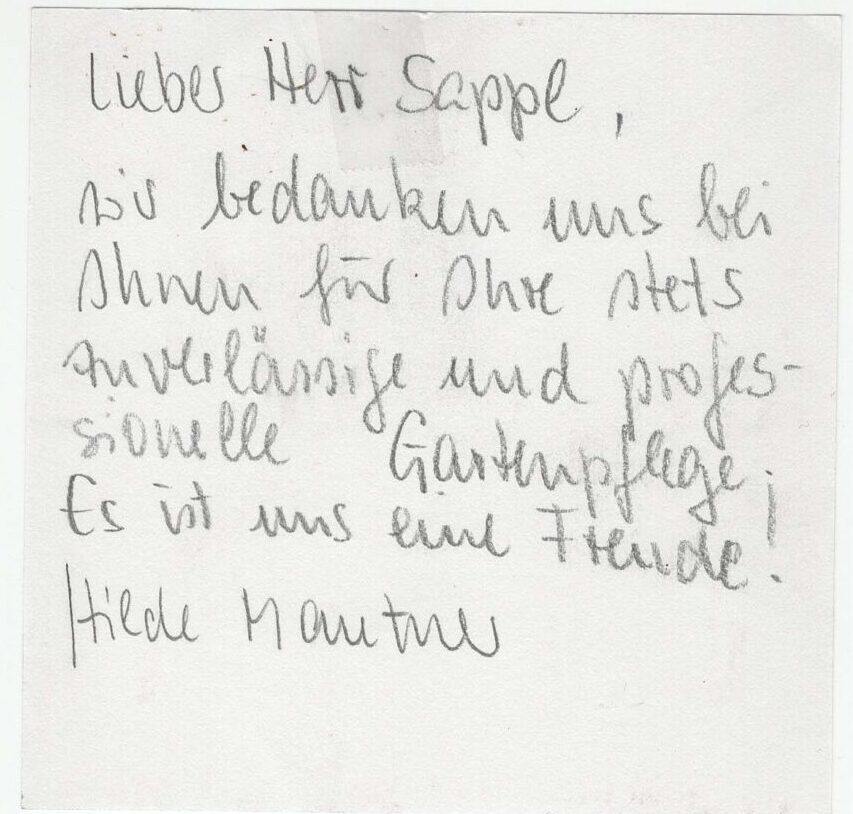 Lieber Herr Sappl,
wir bedanken uns bei
Ihnen für Ihre stets
zuverlässige und profes-
sionelle Gartenpflege.
Es ist uns eine Freude!
Hilde Mautner